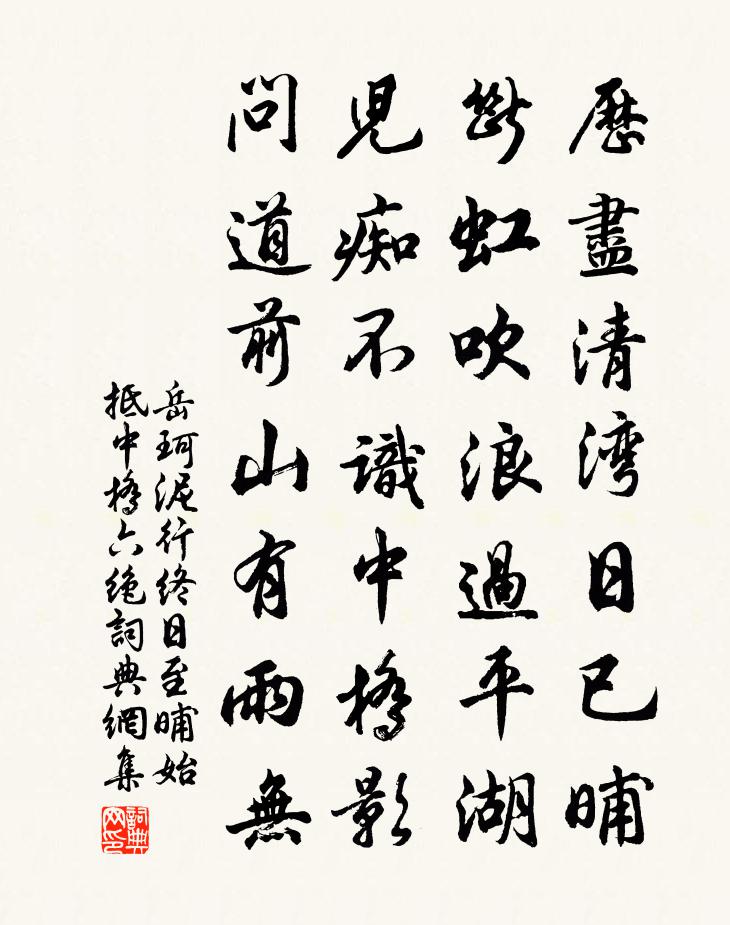 歷盡清湾日已晡
斷虹吹浪過平湖
児痴不識中橋影
問道前山有雨無
岳珂泥行終日至晡始
抵中橋六絶詞典網集
詞典网印